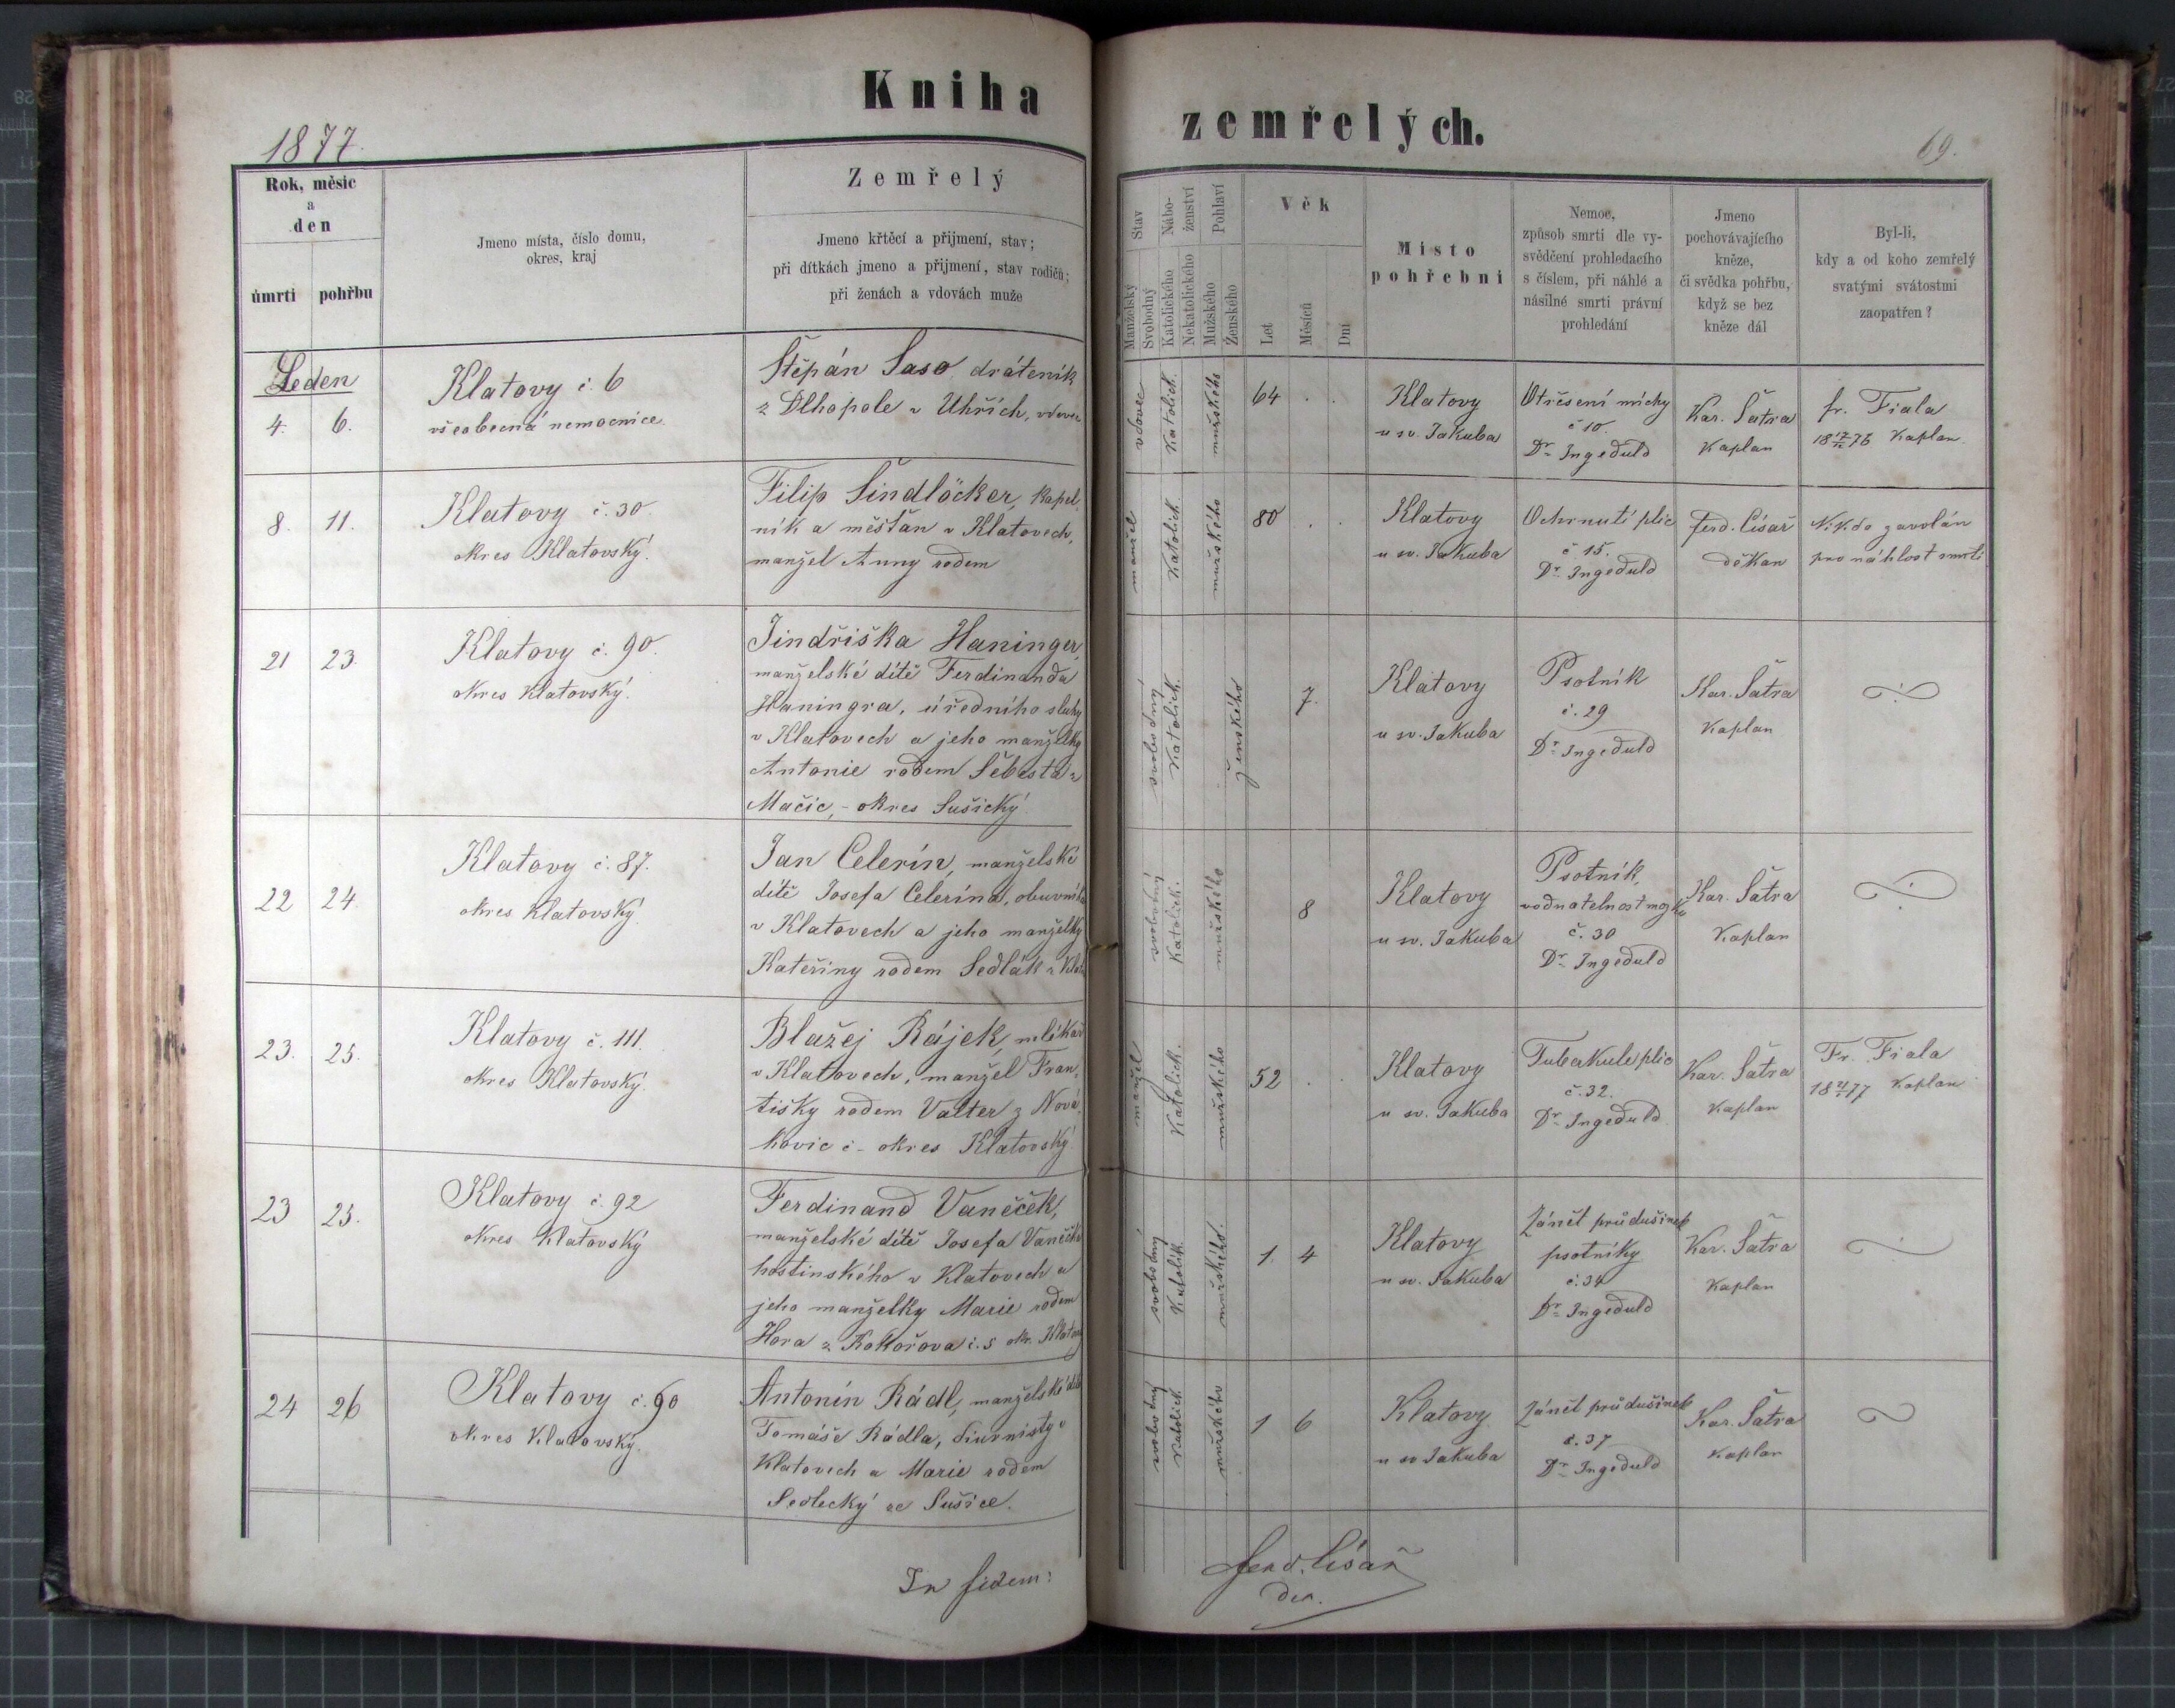 Kniha
zemřelých.
1877.
69.
Rok, měsíc
a
den
úmrtí
pohřbu
Jmeno místa, číslo domu,
okres, kraj
Zemřelý
Jmeno křtěcí a přijmení, stav;
při dítkách jmeno a přijmení, stav rodičů;
při ženách a vdovách muže
Stav
Manželský
Svobodný
Nábo-
ženství
Katolického
Nekatolického
Pohlaví
Mužského
Ženského
Věk
Let
Měsíců
Dní
Místo
pohřební
Nemoc,
způsob smrti dle vy-
svědčení prohledacího
s číslem, při náhlé a
násilné smrti právní
prohledání
Jmeno
pochovávajícího
kněze,
či svědka pohřbu,
když se bez
kněze dál
Byl-li,
kdy a od koho zemřelý
svatými svátostmi
zaopatřen?
Leden
4. 6.
Klatovy č. 6
všeobecná nemocnice.
Štěpán Saso dráteník
z Dlhopole v Uhřích, vdovec
vdovec
Katolick.
mužského
64 . .
Klatovy
u sv. Jakuba
Otřesení míchy
č 10.
Dr. Ingeduld
Kar. Šatra
Kaplan
fr. Fiala
Kaplan
8. 11.
Klatovy č. 30
okres Klatovský.
Filip Šindlöcker, kapel
ník a měšťan v Klatovech,
manžel Anny rodem
manžel
Katolick.
mužského
80 . .
Klatovy
u sv. Jakuba
Ochrnutí plic
č 15.
Dr. Ingeduld
Ferd. Císař
děkan
Nikdo zavolán
pro náhlost smrti
21 23.
Klatovy č. 90.
okres Klatovský.
Jindřiška Haninger,
manželské dítě Ferdinanda
Haningra, úředního sluhy
v Klatovech a jeho manželky
Antonie rodem Šebesta z
Mačic, - okres Sušický
svobodný
Katolick.
ženského
7.
Klatovy
u sv. Jakuba
Psotník
č. 29
Dr. Ingeduld
Kar. Šatra
Kaplan
22 24
Klatovy č. 87.
okres Klatovský.
Jan Celerín, manželské
dítě Josefa Celerína, obuvníka
v Klatovech a jeho manželky
Kateřiny rodem Sedlák z Klat
svobodný
Katolick.
mužského
8
Klatovy
u sv. Jakuba
Psotník,
vodnatelnost mozku
č. 30
Dr. Ingeduld
Kar. Šatra
Kaplan
23. 25.
Klatovy č. 111.
okres Klatovský.
Blažej Rájek, mlékař
v Klatovech, manžel Fran-
tišky rodem Valter z Nová
kovic č - okres Klatovský
manžel
Katolick.
mužského
52 . .
Klatovy
u sv. Jakuba
Tuberkule plic
č. 32.
Dr. Ingeduld
Kar. Šatra
Kaplan
Fr. Fiala
Kaplan
23 25.
Klatovy č. 92
okres Klatovský
Ferdinand Vaněček,
manželské dítě Josefa Vaněčka
hostinského v Klatovech a
jeho manželky Marie rodem
Hora z Kokořova č. 5 okr. Klatovy
svobodný
Katolick.
mužského.
1. 4
Klatovy
u sv. Jakuba
Zánět průdušinek
psotníky
č. 34
Dr. Ingeduld
Kar. Šatra
Kaplan
24 26
Klatovy č. 60
okres Klatovský.
Antonín Rádl, manželské dítě
Tomáše Rádla, diurnisty v
Klatovech a Marie rodem
Sedlecký ze Sušice.
svobodný
Katolick.
mužského
1 6
Klatovy
u sv Jakuba
Zánět průdušinek
č. 37
Dr. Ingeduld
Kar. Šatra
Kaplan
In fidem:
Ferd. Císař